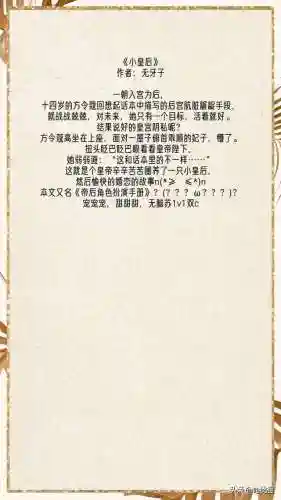 《小皇后》
作者：无牙子
一朝入宫为后，
十四岁的方令蔻回想起话本中描写的后宫肮脏龌龊手段，
就战战兢兢，对未来，她只有一个目标，活着就好。
结果说好的皇宫阴私呢？
方令蔻高坐在上座，面对一屋子俯首乖顺的妃子，懵了。
扭头眨巴眨巴眼看着皇帝陛下，
她弱弱道：“这和话本里的不一样……”
这就是个皇帝辛辛苦苦圈养了一只小皇后，
然后愉快的婚恋的故事n(*≥　≤*)n
本文又名《帝后角色扮演手册》？(？？？ω？？？)？
宠宠宠，甜甜甜，无脑苏1v1双c